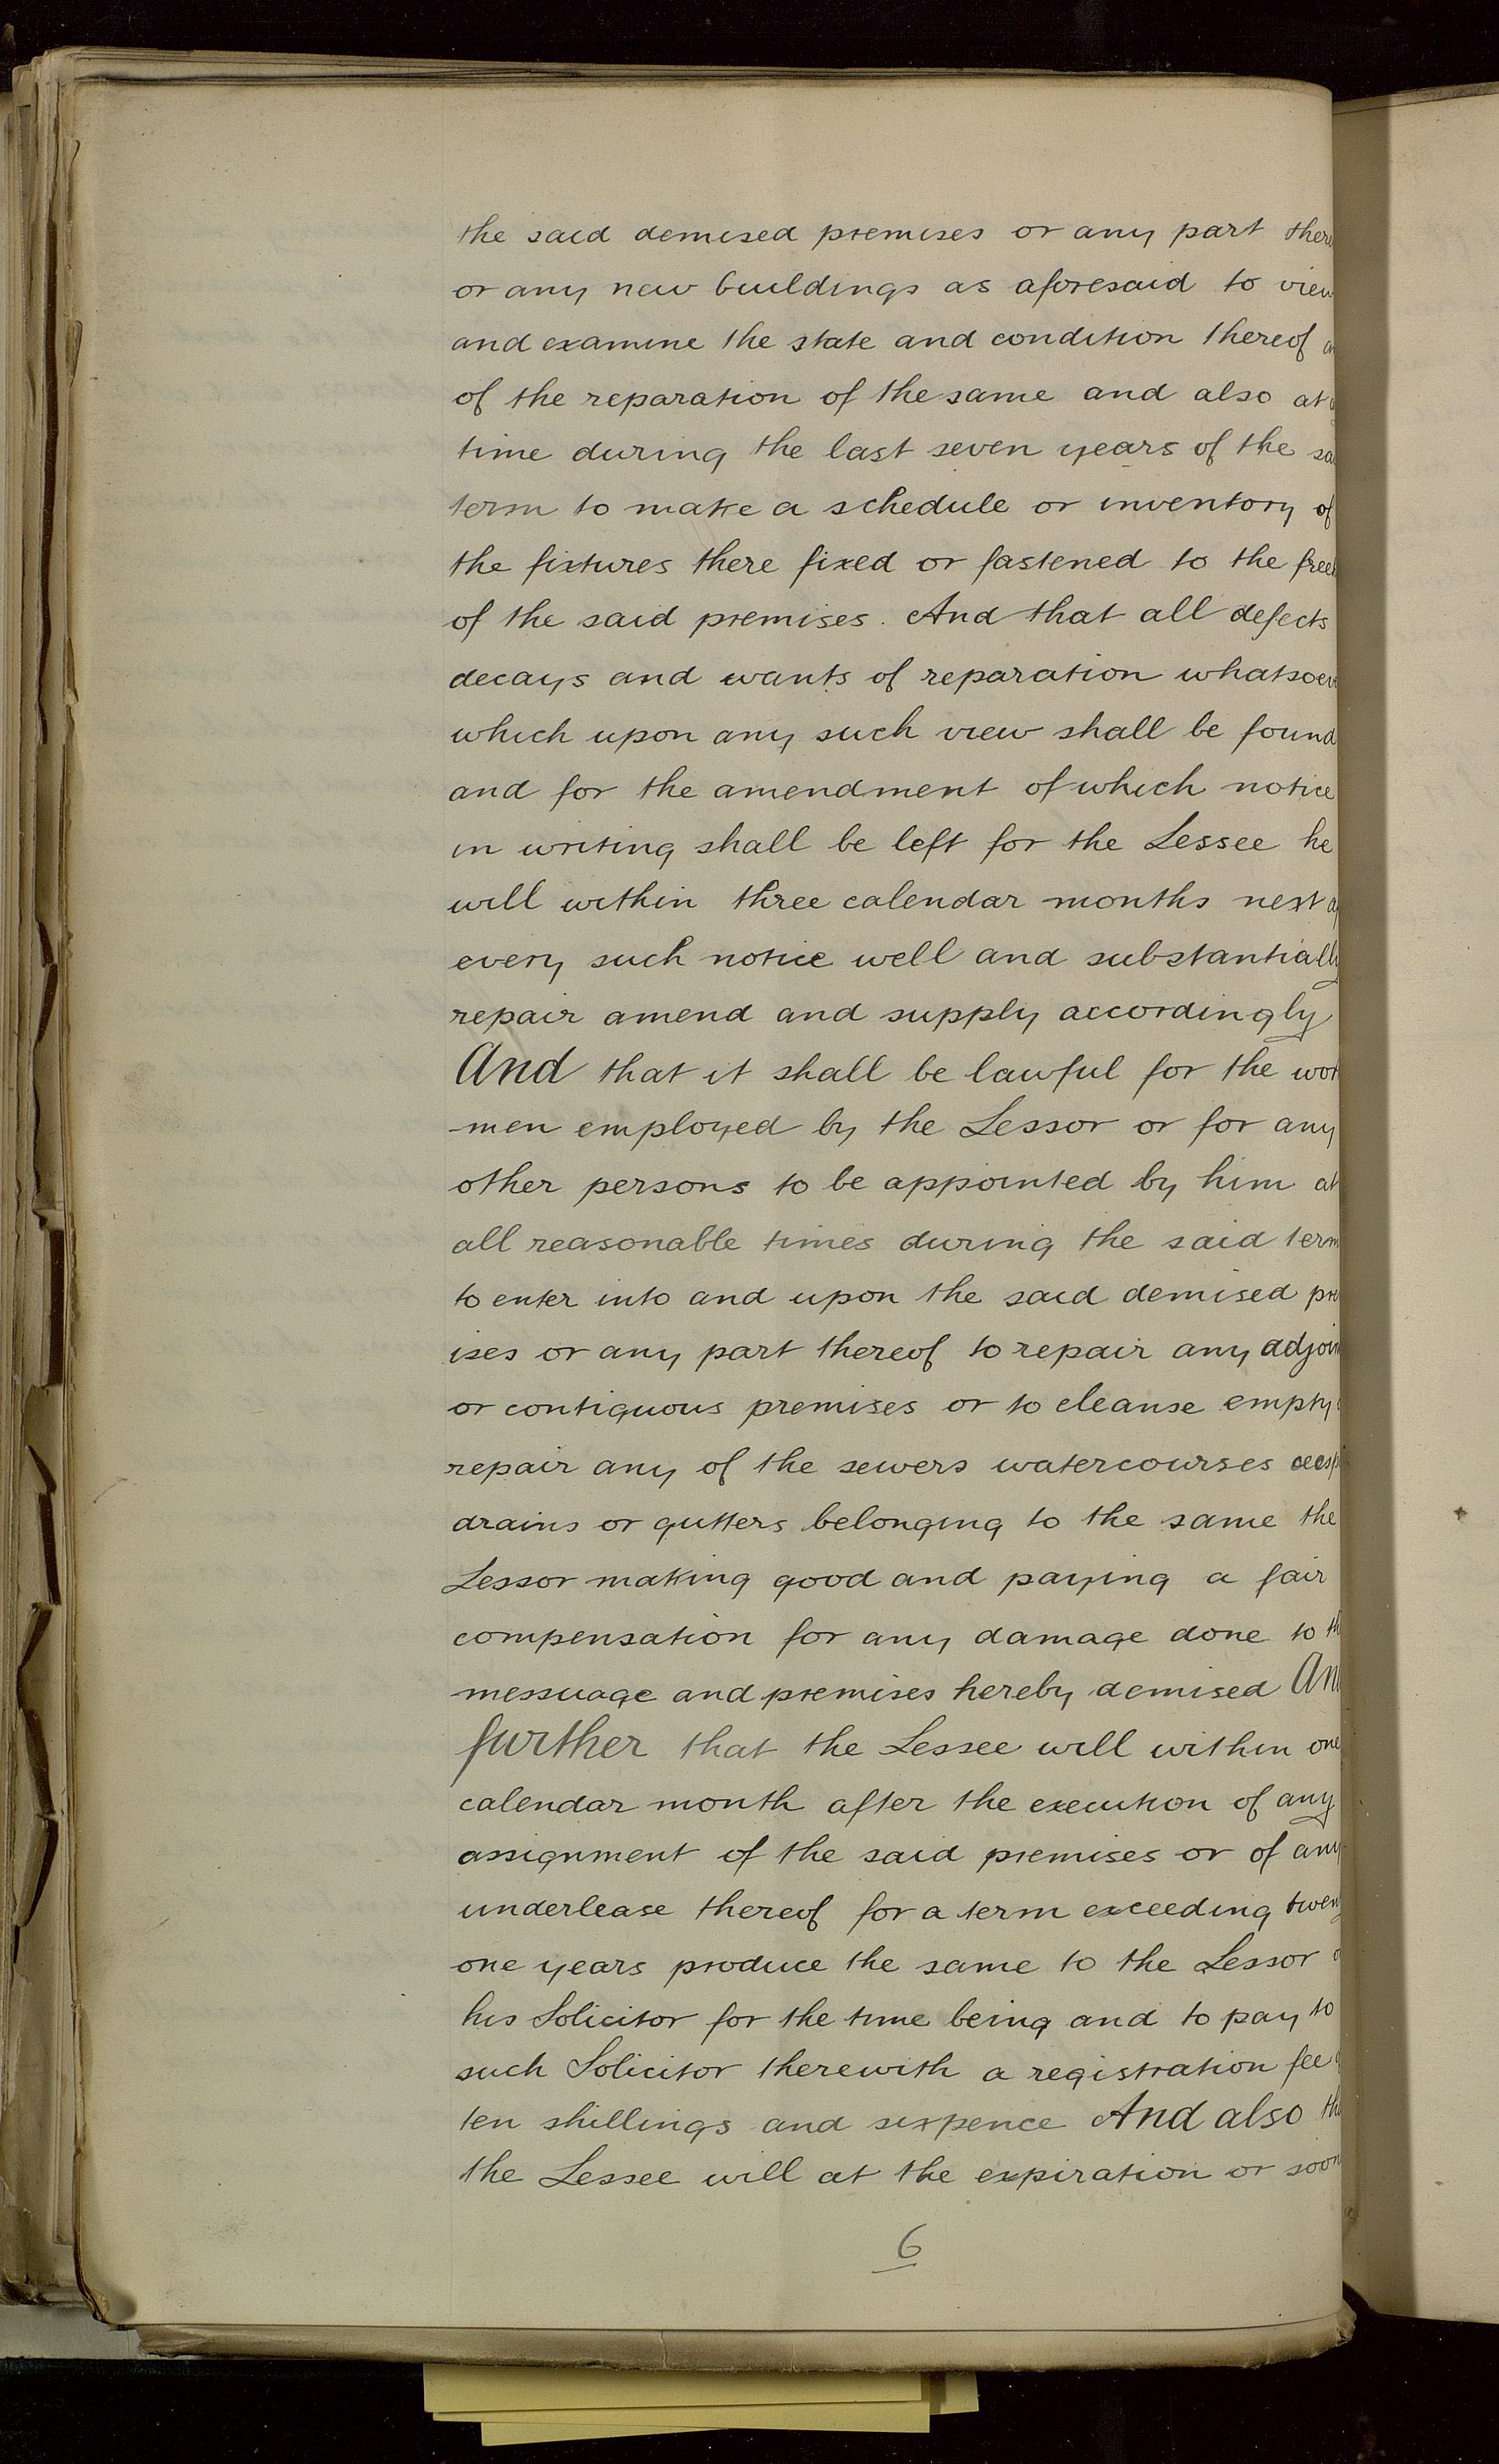 the said demised premises or any part there
or any new buildings as aforesaid to view
and examine the state and condition thereof
of the reparation of the same and also at
time during the last seven years of the
term to make a schedule or inventory of
the fixtures there fixed or fastened to the
of the said premises. And that all defects
decays and wants of reparation whatsoev
which upon any such view shall be found
and for the amendment of which notice
in writing shall be left for the Lessee he
will within three calendar months next
every such notice well and substantially
repair amend and supply accordingly
And that it shall be lawful for the wor
men employed by the Lessor or for any
other persons to be appointed by him at
all reasonable times during the said term
to enter into and upon the said demised pre
ises or any part thereof to repair any adjoin
or contiguous premises or to cleanse empty
repair any of the sewers watercourses cessp
drains or gutters belonging to the same the
Lessor making good and paying a fair
compensation for any damage done to th
messuage and premises hereby demised An
further that the Lessee will within one
calendar month after the execution of any
assignment of the said premises or of any
underlease thereof for a term exceeding twen
one years produce the same to the Lessor
his Solicitor for the time being and to pay to
such Solicitor therewith a registration fee
ten shillings and sixpence And also th
the Lessee will at the expiration or soon
6